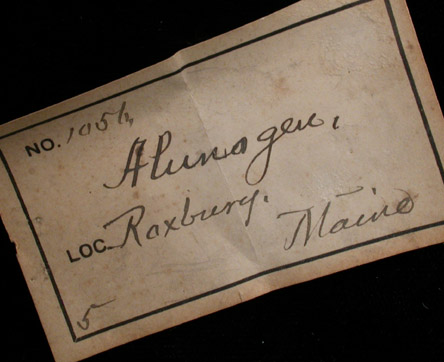 NO. 1056
Alunogen,
LOC. Roxbury.
Maine
5